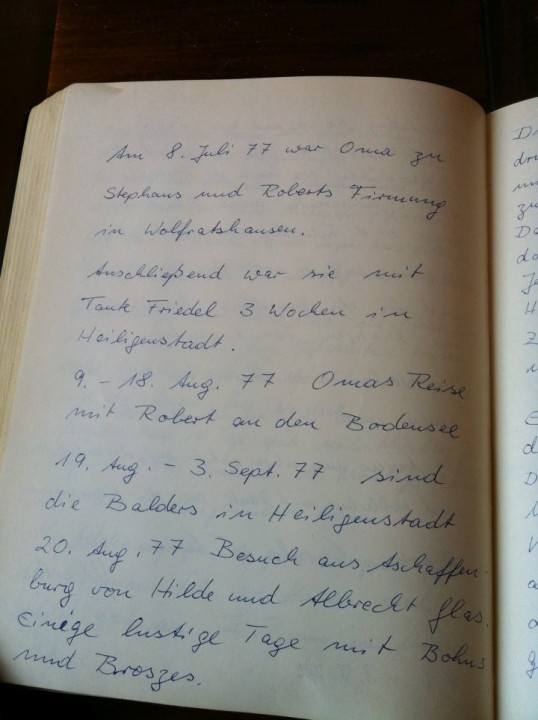 Am 8. Juli 77 war Oma zu
Stephans und Roberts Firmung
in Wolfratshausen.
Anschließend war sie mit
Tante Friedel 3 Wochen in
Heiligenstadt.
9. - 18. Aug. 77 Omas Reise
mit Robert an den Bodensee
19. Aug. - 3. Sept. 77 sind
die Balders in Heiligenstadt
20. Aug. 77 Besuch aus Aschaffen-
burg von Hilde und Albrecht Glas.
Einige lustige Tage mit Bohns
und Broszes.